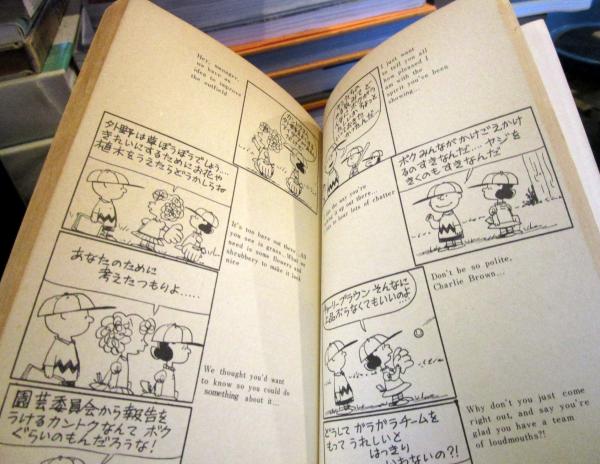 Hey, manager,
we have an
idea to improve
the outfield
外野は草ぼうぼうでしょう…
きれいにするためにお花や
植木をうえたらどうかしらね
It's too bare out there...All
you see is grass..What we
need is some flowers and
shrubbery to make it look
nice
あなたのために
考えたつもりよ.....
We thought you'd want
to know so you could do
something about it...
園芸委員会から報告を
うけるカントクなんて ボク
ぐらいのもんだろうな!
I just want
to tell you all
how pleased I
am with the
spirit you've been
showing...
the way you're
it up out there...
to hear lots of chatter
ボク みんなが かけごえかけ
るのすきなんだ.... ヤジを
きくのも すきなんだ
Don't be so polite,
Charlie Brown...
チャーリーブラウン そんなに
上品ぶらなくてもいいのよ
Why don't you just come
right out, and say you're
glad you have a team
of loudmouths?!
どうして ガラガラチームを
もって うれしいと
はっきり
いわないの?!